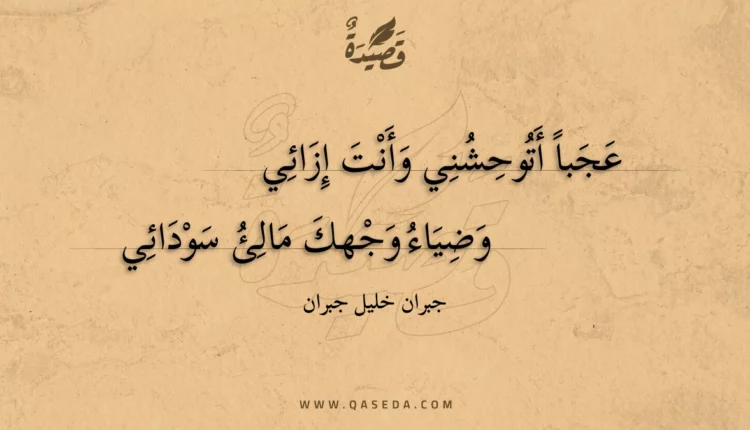 قَصِيدَةٌ
عَجَباً أَتُوحِشُنِي وَأَنْتَ إِزَائِي
وَضِيَاءُ وَجْهكَ مَالِئُ سَوْدَائِي
جبران خليل جبران
WWW.QASEDA.COM